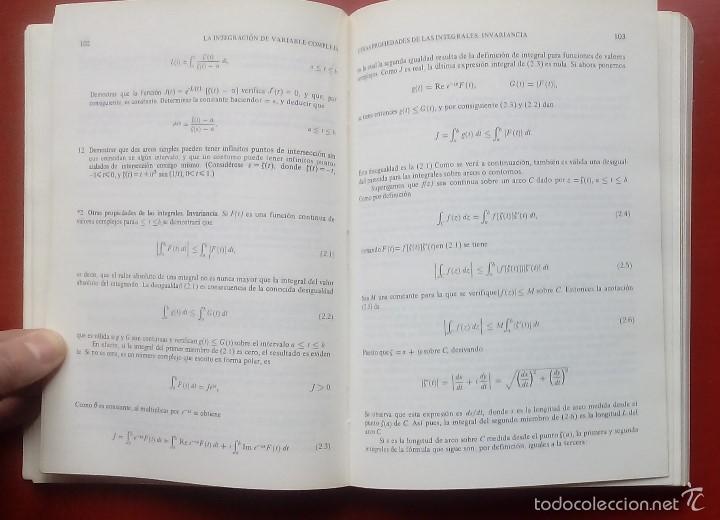 102 LA INTEGRACIÓN DE VARIABLE COMPLEJA
L(t) = ∫ ζ'(t) / ζ(t) − a dt, a ≤ t ≤ b
Demostrar que la función J(t) = e^-L(t) [ζ(t) − a] verifica J'(t) = 0, y que, por
consiguiente, es constante. Determinar la constante haciendo t = a, y deducir que
e^L(t) = ζ(t) − a / ζ(a) − a, a ≤ t ≤ b
12 Demostrar que dos arcos simples pueden tener infinitos puntos de intersección sin
que coincidan en algún intervalo, y que un contorno puede tener infinitos puntos
aislados de intersección consigo mismo. (Considérese z = ζ(t), donde ζ(t) = −t,
−1 ≤ t ≤ 0, y ζ(t) = t + it³ sen (1/t), 0 < t ≤ 1.)
*2 Otras propiedades de las integrales. Invariancia. Si F(t) es una función continua de
valores complejos para a ≤ t ≤ b se demostrará que
|∫ₐᵇ F(t) dt| ≤ ∫ₐᵇ |F(t)| dt, (2.1)
es decir, que el valor absoluto de una integral no es nunca mayor que la integral del valor
absoluto del integrando. La desigualdad (2.1) es consecuencia de la conocida desigualdad
∫ₐᵇ g(t) dt ≤ ∫ₐᵇ G(t) dt (2.2)
que es válida si g y G son continuas y verifican g(t) ≤ G(t) sobre el intervalo a ≤ t ≤ b
En efecto, si la integral del primer miembro de (2.1) es cero, el resultado es eviden
te. Si no es cero, es un número complejo que escrito en forma polar, es
∫ₐᵇ F(t) dt = Je^iθ, J > 0.
Como θ es constante, al multiplicar por e^-iθ se obtiene
J = ∫ₐᵇ e^-iθ F(t) dt = ∫ₐᵇ Re e^-iθ F(t) dt + i ∫ₐᵇ Im e^-iθ F(t) dt (2.3)
OTRAS PROPIEDADES DE LAS INTEGRALES. INVARIANCIA 103
en la cual la segunda igualdad resulta de la definición de integral para funciones de valores
complejos. Como J es real, la última expresión integral de (2.3) es nula. Si ahora ponemos
g(t) = Re e^-iθ F(t), G(t) = |F(t)|,
se tiene entonces g(t) ≤ G(t), y por consiguiente (2.3) y (2.2) dan
J = ∫ₐᵇ g(t) dt ≤ ∫ₐᵇ |F(t)| dt.
Esta desigualdad es la (2.1) Como se verá a continuación, también es válida una desigual-
dad parecida para las integrales sobre arcos o contornos.
Supongamos que f(z) sea continua sobre un arco C dado por z = ζ(t), a ≤ t ≤ b
Como por definición
∫c f(z) dz = ∫ₐᵇ f[ζ(t)]ζ'(t) dt, (2.4)
cuando F(t) = f[ζ(t)]ζ'(t) en (2.1) se tiene
|∫c f(z) dz| ≤ ∫ₐᵇ |f[ζ(t)]||ζ'(t)| dt (2.5)
Sea M una constante para la que se verifique |f(z)| ≤ M sobre C. Entonces la acotación
(2.5) da
|∫c f(z) dz| ≤ M ∫ₐᵇ |ζ'(t)| dt (2.6)
Puesto que ζ = x + iy sobre C, derivando
|ζ'(t)| = |dx/dt + i dy/dt| = √((dx/dt)² + (dy/dt)²)
Se observa que esta expresión es ds/dt, donde s es la longitud de arco medida desde el
punto ζ(a) de C. Así pues, la integral del segundo miembro de (2.6) es la longitud L del
arco C.
Si s es la longitud de arco sobre C medida desde el punto ζ(a), la primera y segunda
integrales de la fórmula que sigue son, por definición, iguales a la tercera:
todocoleccion